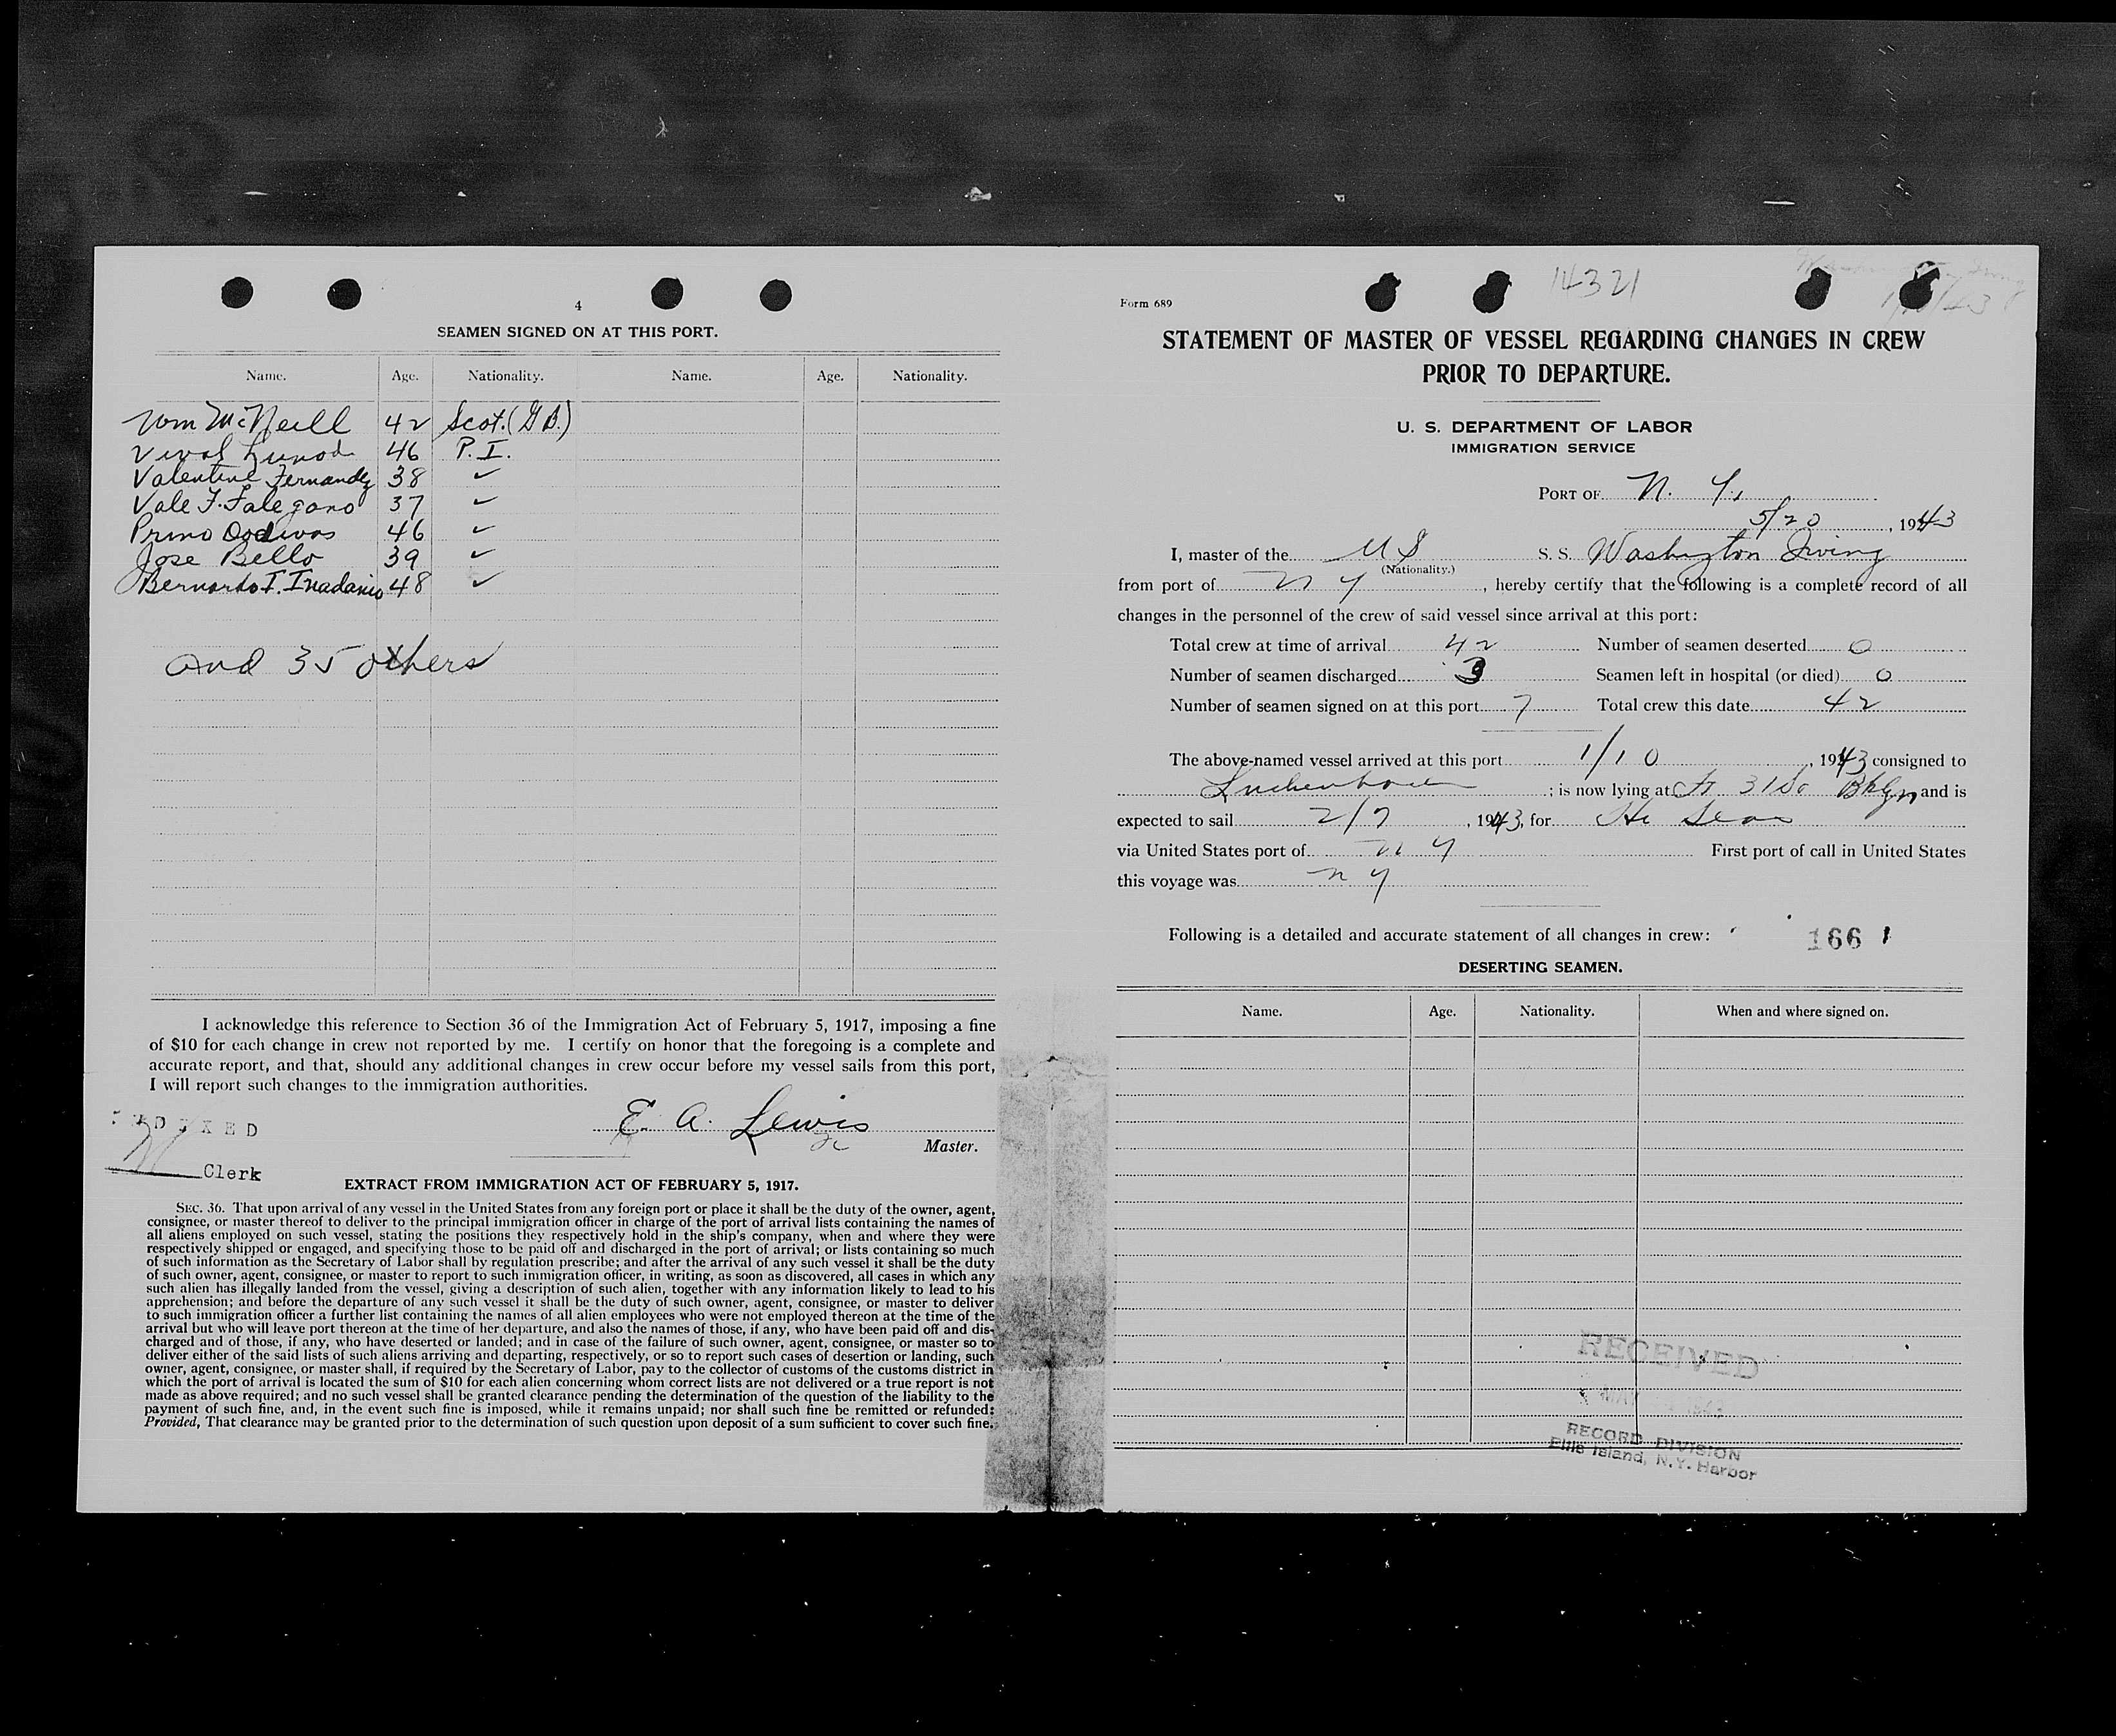 4
SEAMEN SIGNED ON AT THIS PORT.
Name. Age. Nationality. Name. Age. Nationality.
Wm McNeill 42 Scot. (G B.)
46 P. I.
Valentine Fernandez 38 ✓
Vale F. Falegano 37 ✓
Primo 46 ✓
Jose Bello 39 ✓
Bernardo T. 48 ✓
and 35 others
I acknowledge this reference to Section 36 of the Immigration Act of February 5, 1917, imposing a fine
of $10 for each change in crew not reported by me. I certify on honor that the foregoing is a complete and
accurate report, and that, should any additional changes in crew occur before my vessel sails from this port,
I will report such changes to the immigration authorities.
INDEXED
E. A. Lewis
Master.
Clerk
EXTRACT FROM IMMIGRATION ACT OF FEBRUARY 5, 1917.
SEC. 36. That upon arrival of any vessel in the United States from any foreign port or place it shall be the duty of the owner, agent,
consignee, or master thereof to deliver to the principal immigration officer in charge of the port of arrival lists containing the names of
all aliens employed on such vessel, stating the positions they respectively hold in the ship's company, when and where they were
respectively shipped or engaged, and specifying those to be paid off and discharged in the port of arrival; or lists containing so much
of such information as the Secretary of Labor shall by regulation prescribe; and after the arrival of any such vessel it shall be the duty
of such owner, agent, consignee, or master to report to such immigration officer, in writing, as soon as discovered, all cases in which any
such alien has illegally landed from the vessel, giving a description of such alien, together with any information likely to lead to his
apprehension; and before the departure of any such vessel it shall be the duty of such owner, agent, consignee, or master to deliver
to such immigration officer a further list containing the names of all alien employees who were not employed thereon at the time of the
arrival but who will leave port thereon at the time of her departure, and also the names of those, if any, who have been paid off and dis-
charged and of those, if any, who have deserted or landed; and in case of the failure of such owner, agent, consignee, or master so to
deliver either of the said lists of such aliens arriving and departing, respectively, or so to report such cases of desertion or landing, such
owner, agent, consignee, or master shall, if required by the Secretary of Labor, pay to the collector of customs of the customs district in
which the port of arrival is located the sum of $10 for each alien concerning whom correct lists are not delivered or a true report is not
made as above required; and no such vessel shall be granted clearance pending the determination of the question of the liability to the
payment of such fine, and, in the event such fine is imposed, while it remains unpaid; nor shall such fine be remitted or refunded:
Provided, That clearance may be granted prior to the determination of such question upon deposit of a sum sufficient to cover such fine.
Form 689
14321
STATEMENT OF MASTER OF VESSEL REGARDING CHANGES IN CREW
PRIOR TO DEPARTURE.
U. S. DEPARTMENT OF LABOR
IMMIGRATION SERVICE
PORT OF N. Y.
5/20, 1943
I, master of the U S S. S. Washington Irving
(Nationality.)
from port of N Y, hereby certify that the following is a complete record of all
changes in the personnel of the crew of said vessel since arrival at this port:
Total crew at time of arrival 42 Number of seamen deserted 0
Number of seamen discharged 3 Seamen left in hospital (or died) 0
Number of seamen signed on at this port 7 Total crew this date 42
The above-named vessel arrived at this port 1/10, 1943 consigned to
; is now lying at Bklyn and is
expected to sail 2/7, 1943, for
via United States port of N Y First port of call in United States
this voyage was N Y
Following is a detailed and accurate statement of all changes in crew: 166
DESERTING SEAMEN.
Name. Age. Nationality. When and where signed on.
RECEIVED
MAY
RECORD DIVISION
Ellis Island, N.Y. Harbor